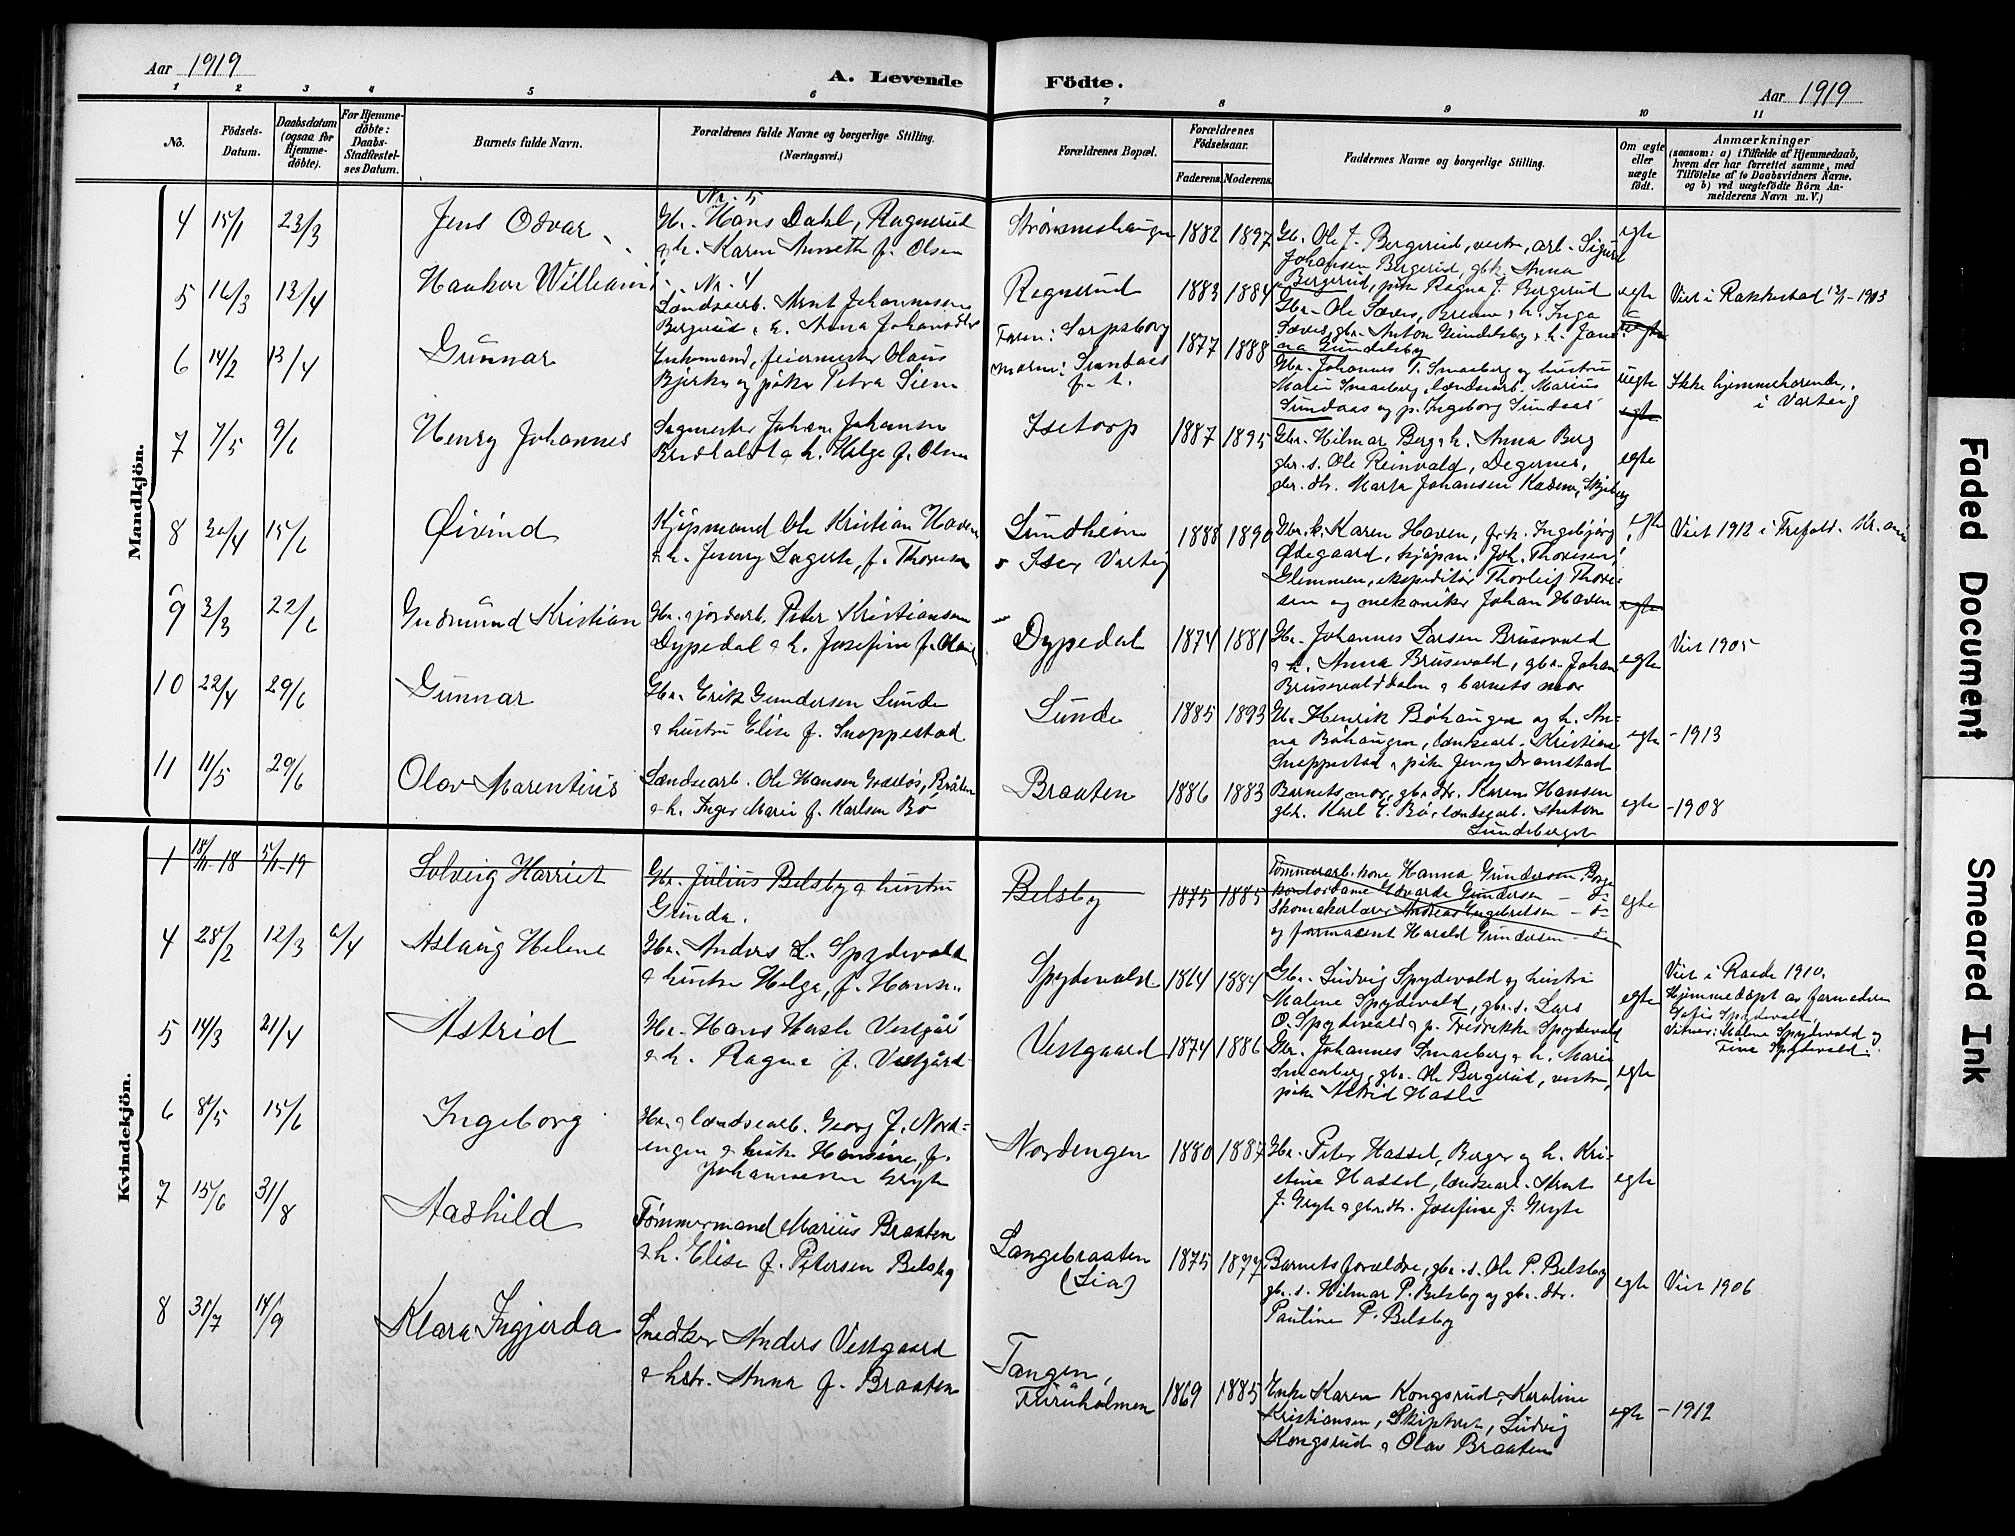 Aar 1919
A. Levende Födte.
Aar 1919
1 2 3 4 5 6 7 8 9 10 11
No.
Födsels-Datum.
Daabsdatum (ogsaa for Hjemme-döbte).
For Hjemme-döbte: Daabs-Stadfæstel-ses Datum.
Barnets fulde Navn.
Forældrenes fulde Navne og borgerlige Stilling.
(Næringsvei.)
Forældrenes Bopæl.
Forældrenes Födselsaar.
Faderens Moderens
Faddernes Navne og borgerlige Stilling.
Om ægte eller uægte födt.
Anmærkninger
(saasom: a) i Tilfælde af Hjemmedaab,
hvem der har forrettet samme, med
Tilföielse af to Daabsvidners Navne,
og b) ved uægtefödte Börn An-
melderens Navn m. V.)
Mandkjön.
4 15/1 23/3 Jens Odvar
Nr. 5
Gbr. Hans Dahl, Ragnerud
& h. Karen Anneth f. Olsen
Strömshaugen 1882 1897
Gbr. Ole J. Bergerud, vestre, arb. Sigurd
Johansen Bergerud, gbk. Anna
Bergerud, pike Ragna J. Bergerud
egte
5 16/3 13/4 Haakon William
Nr. 4
Landsearb. Arnt Johannessen
Bergerud & h. Anna Johansdtr
Ragnerud 1883 1884
Gbr. Ole Sæves, Breum & h. Inga
Sæves, gbr. Anton Gundelsby & h. Jand
na Gundelsby
egte
Viet i Rakkestad 1903
6 14/2 13/4 Gunnar
Enkemand, feiermester Olaus
Bjerke og pike Petra Siem
Faren: Sarpsborg
moren: Sundaas
f. t.
1877 1888
Gbr. Johannes T. Smaaberg og hustru
Maren Smaaberg, landsearb. Marius
Sundaas og p. Ingeborg Sundaas
uegte
Ikke hjemmehørende
i Varteig
egte
7 7/5 9/6 Henry Johannes
Sagmester Johan Johansen
& h. Helga f. Olsen
Isetorp 1887 1895
Gbr. Hilmar Berg & h. Anna Berg
gbr. s. Ole Reinvald, Degernes,
gbr. dtr. Marta Johansen Kasene, Skjeberg
egte
8 30/4 15/6 Øivind
Kjøpmand Ole Kristian Haven
& h. Jenny Lagerta, f. Thoresen
Sundheim
Isen Varteig
1888 1890
Gbr. k. Karen Haven, fr. k. Ingebjørg
Ødegaard, kjøpm. Joh. Thoresen,
Glemmen, ekspeditør Thorleif Thore-
sen og mekaniker Johan Haven
egte
Viet 1912 i Trefold. Kr.ania
egte
9 3/3 22/6 Gudmund Kristian
Gbr. & jordarb. Peter Kristiansen
Dypedal & h. Josefine f. Olsen
Dypedal 1874 1881
Gbr. Johannes Larsen Brusevold
& h. Anna Brusevold, gbr. Johan
Brusevolddalen & barnets mor
egte
Viet 1905
10 22/4 29/6 Gunnar
Gbr. Erik Gundersen Sunde
& hustru Elise f. Snoppestad
Sunde 1885 1893
Gbr. Henrik Bøhaugen og h. An-
na Bøhaugen, landsearb. Kristian
Snoppestad & pike Jenny Dramstad
egte
- 1913
11 11/5 29/6 Olav Marentius
Landsearb. Ole Hansen Grasløs, Bråten
& h. Inger Marie f. Karlsen Bø
Braaten 1886 1883
Barnets mor, gbr. dtr. Karen Hansen
gbr. Karl E. Bø, landsearb. Anton
Sundsberget
egte
- 1908
Kvindekjön.
1 18/11-18 5/1-19 Solveig Harriet
Gbr. Julius Belsby & hustru
Gunda.
Belsby 1875 1885
Tømmerarb. kone Hanna Gundersen, Borge
kontordame Edvarda Gundersen - do
Skomakerlærer Andreas Engebretsen - do
og farmaceut Harald Gundersen - do
egte
4 28/2 12/3 6/4 Aslaug Helene
Gbr. Anders L. Spydevold
& hustru Helga, f. Hansen
Spydevold 1864 1884
Gbr. Ludvig Spydevold og hustru
Malene Spydevold, gbr. s. Lars
O. Spydevold & p. Fredrikke Spydevold
egte
Viet i Raade 1910.
Hjemmedøpt av farmoderen
Sofie Spydevold,
Vitner: Malene Spydevold og
Tina Spydevold.
5 14/3 21/4 Astrid
Gbr. Hans Hasle Vestgår
& h. Ragna f. Vestgård
Vestgaard 1874 1886
Gbr. Johannes Smaaberg & h. Maren
Smaaberg, gbr. Ole Bergerud, vestre,
pike Astrid Hasle
egte
6 8/5 15/6 Ingeborg
Gbr. & landsearb. Georg J. Nord-
engen & hustr. Hansine, f.
Johannesen Gryte
Nordengen 1880 1887
Gbr. Peter Hassel, Berger og h. Kri-
stine Hassel, landsearb. Arnt
J. Gryte & gbr.dtr. Josefine J. Gryte
egte
7 15/6 31/8 Aashild
Tømmermand Marius Braaten
& h. Elise f. Petersen Belsby
Langebraaten
(Lia)
1875 1877
Barnets forældre, gbr. s. Ole P. Belsby
gbr. s. Wilmar P. Belsby og gbr. dtr.
Pauline P. Belsby
egte
Viet 1906
8 31/7 14/9 Klara Ingjerda
Snedker Anders Vestgaard
& hstr. Anna f. Braaten
Tangen,
Furuholmen
1869 1885
Enke Karen Kongsrud, Karoline
Kristiansen, Skiptvet, Ludvig
Kongsrud & Olav Braaten
egte
- 1912
Faded Document
Smeared Ink